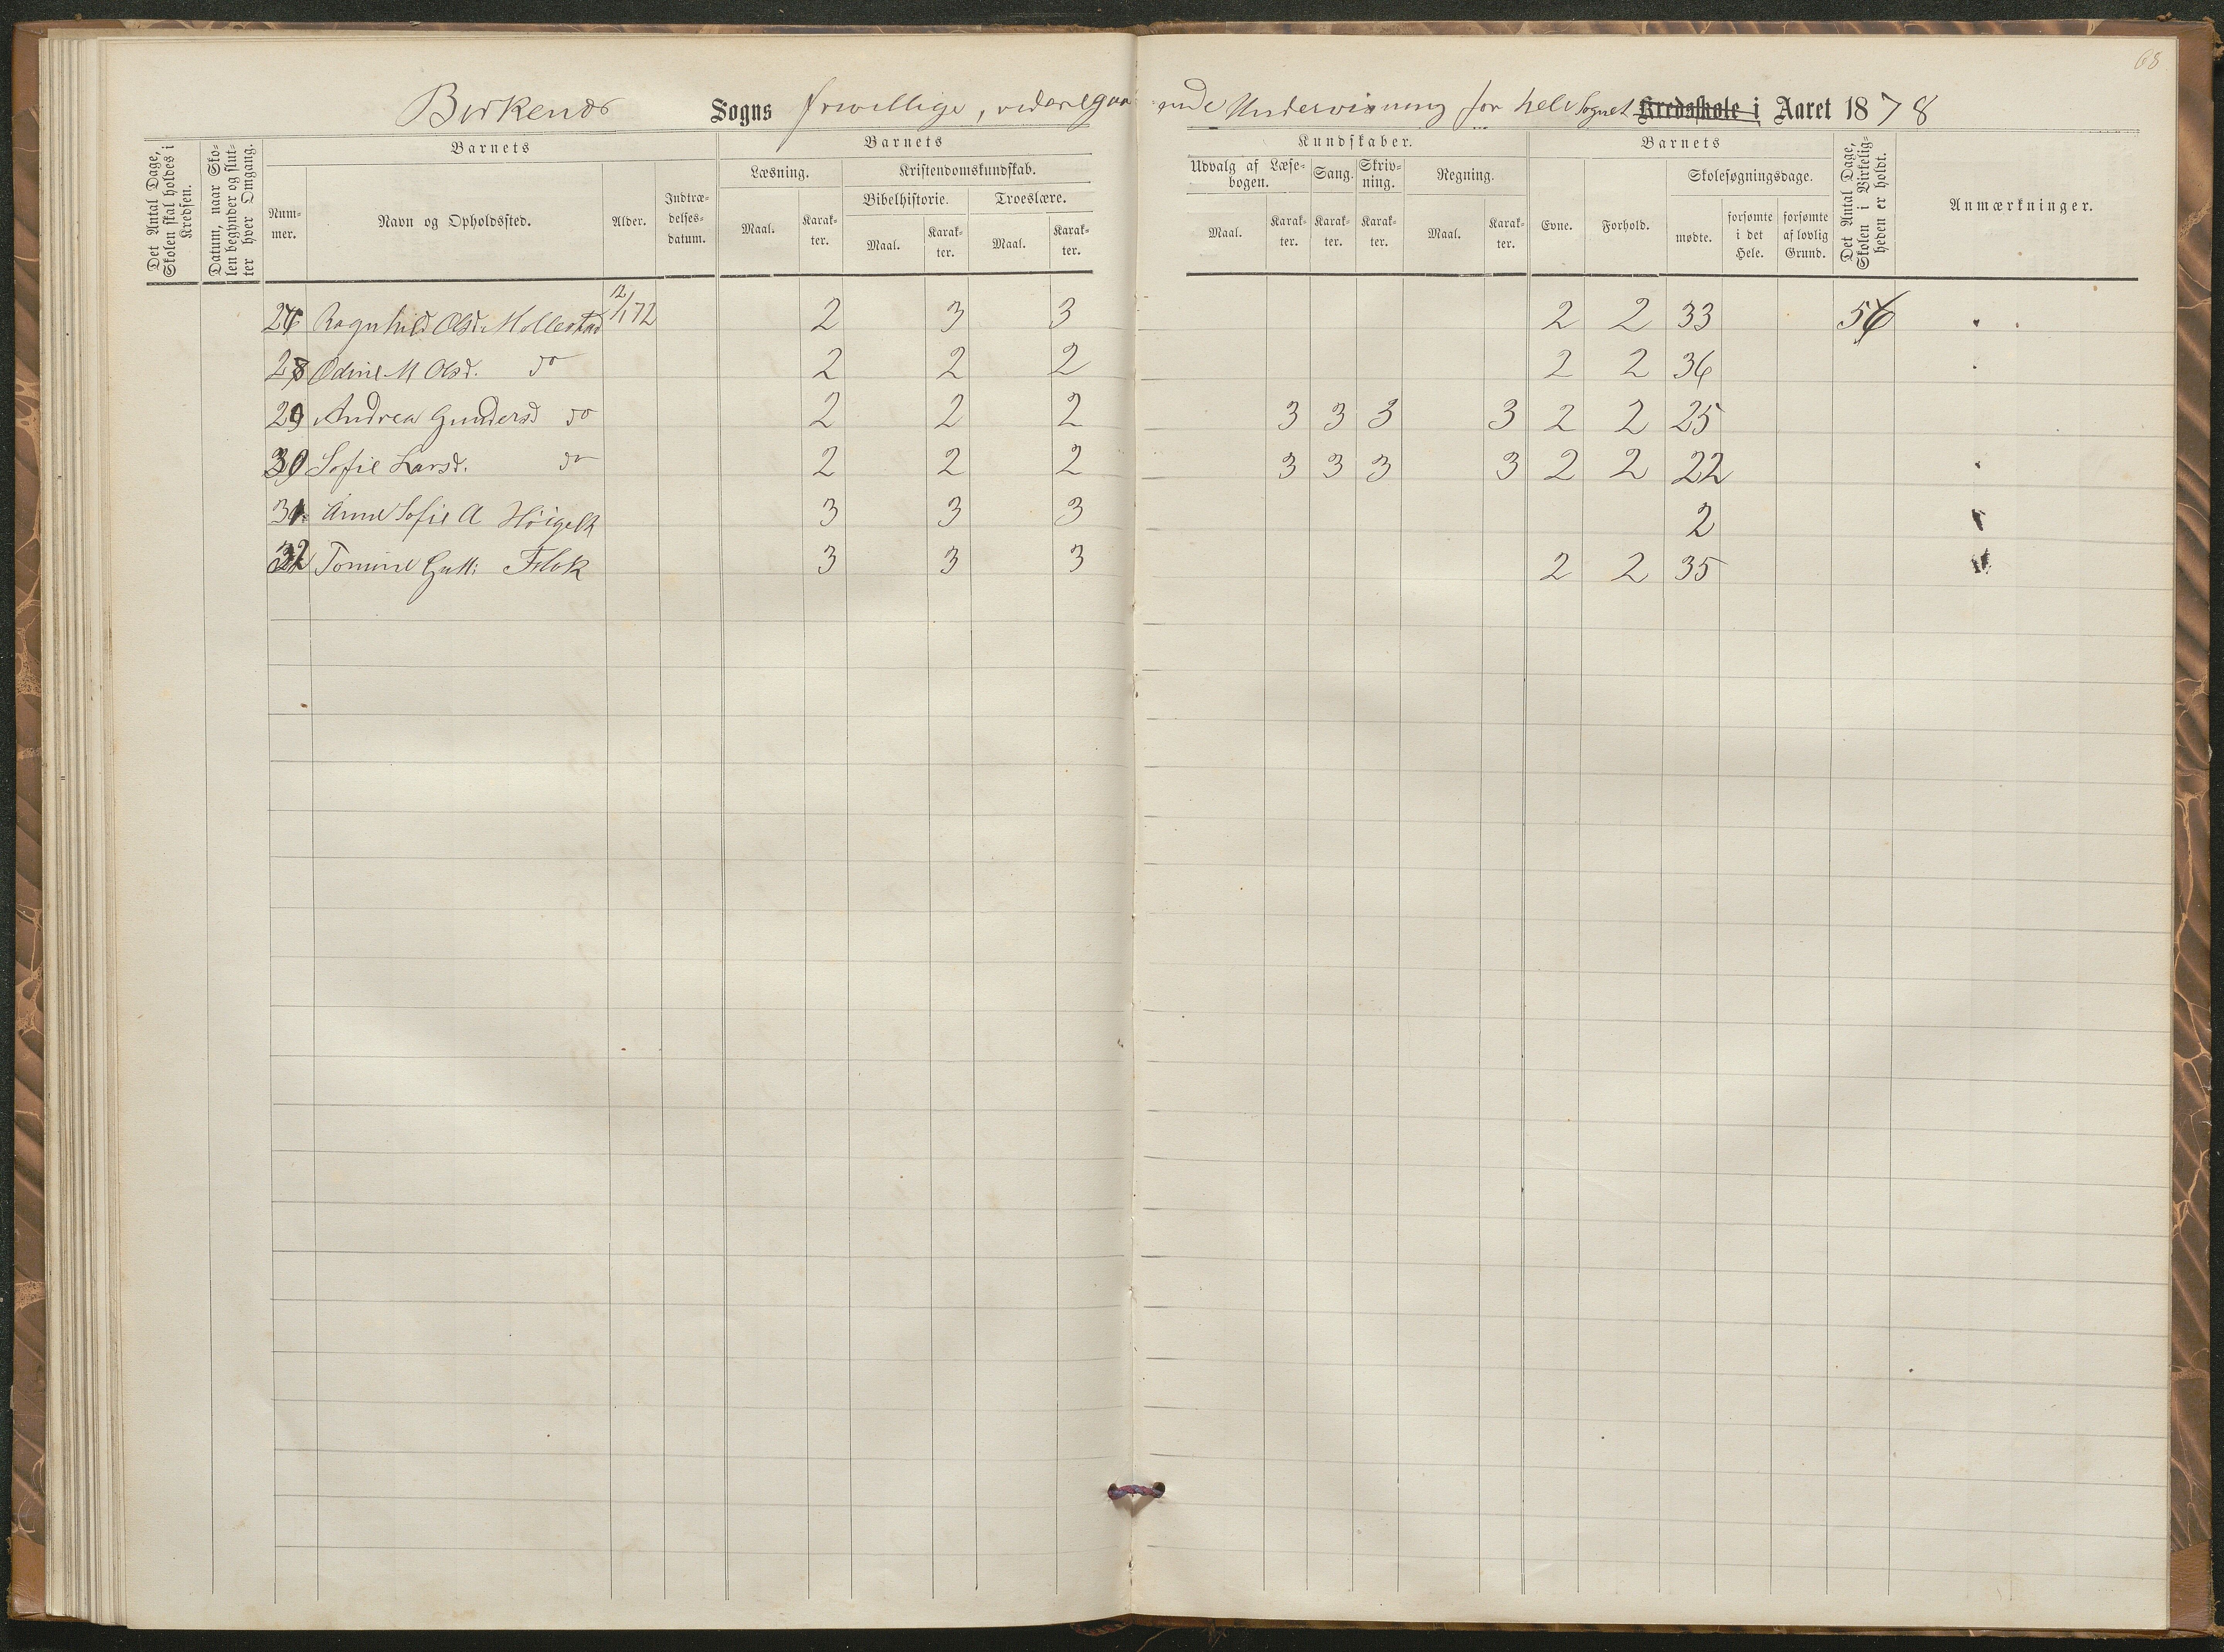 68
Birkenæs Sogns frivillige, videregaaende Undervisning for hele Sognet Kredsskole i Aaret 1878
Det Antal Dage, Skolen skal holdes i Kredsen.
Datum, naar Skolen begynder og slutter hver Omgang.
Barnets
Nummer.
Navn og Opholdssted.
Alder.
Indtrædelsesdatum.
Barnets
Læsning.
Maal.
Karakter.
Kristendomskundskab.
Bibelhistorie.
Maal.
Karakter.
Troeslære.
Maal.
Karakter.
Kundskaber.
Udvalg af Læsebogen.
Maal.
Karakter.
Sang.
Karakter.
Skrivning.
Karakter.
Regning.
Maal.
Karakter.
Barnets
Evne.
Forhold.
Skolesøgningsdage.
mødte.
forsømte i det Hele.
forsømte af lovlig Grund.
Det Antal Dage, Skolen i Virkeligheden er holdt.
Anmærkninger.
Ragnhild Olsd. Mollestad 12/1 72 2 3 3 2 2 33
28 Odine M Olsd. do 2 2 2 2 2 36
29 Andrea Gundersd do 2 2 2 3 3 3 3 2 2 25
30 Sofie Larsd. do 2 2 2 3 3 3 3 2 2 22
31 Anne Sofie A 3 3 3 2
32 Tomine 3 3 3 2 2 35